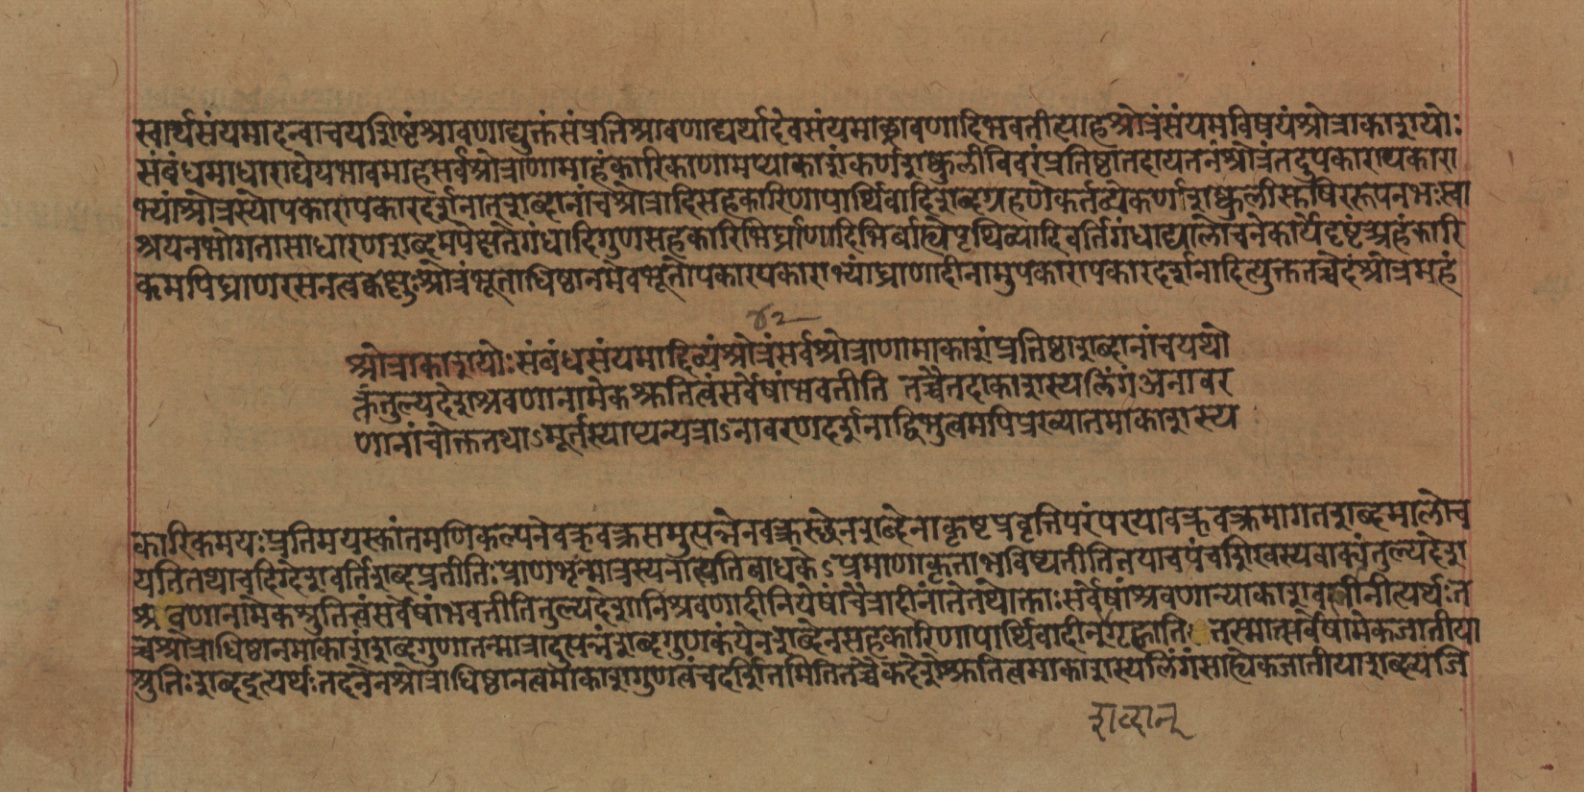 स्वार्थसंयमादन्वाचयशिष्टंश्रावणाद्युक्तंसंप्रतिश्रावणाद्यर्थादेवसंयमाछ्रावणादिभवतीत्याहश्रोत्रंसंयमविषयंश्रोत्राकाशयोः
संबंधमाधाराधेयभावमाहसर्वश्रोत्राणामाहंकारिकाणामप्याकाशंकर्णशष्कुलीविवरंप्रतिष्ठातदायतनंश्रोत्रंतदुपकारापकारा
भ्यांश्रोत्रस्योपकारापकारदर्शनात्शब्दानांचश्रोत्रादिसहकारिणापार्थिवादिशब्दग्रहणेकर्तव्येकर्णशष्कुलीसुषिररूपनभःस्वा
श्रयनभोगतासाधारणशब्दमपेक्षतेगंधादिगुणसहकारिभिर्घ्राणादिभिर्बाह्येपृथिव्यादिवर्तिगंधाद्यालोचनेकार्येदृष्टंअहंकारि
कमपिघ्राणरसनत्वक्चक्षुःश्रोत्रंभूताधिष्ठानमेवभूतोपकारपकाराभ्यांघ्राणादीनामुपकारापकारदर्शनादित्युक्ततच्चेदंश्रोत्रमहं
४२
श्रोत्राकाशयोःसंबंधसंयमाद्दिव्यंश्रोत्रंसर्वश्रोत्राणामाकाशंप्रतिष्ठाशब्दानांचयथो
क्तंतुल्यदेशश्रवणानामेकश्रुतित्वंसर्वेषांभवतीति तच्चैतदाकाशस्यलिंगंअनावर
णानांचोक्ततथाऽमूर्तस्याप्यन्यत्राऽनावरणदर्शनाद्विभुत्वमपिप्रख्यातमाकाशस्य
कारिकमयःप्रतिमयस्कांतमणिकल्पनेवक्तृवक्त्रसमुत्पन्नेनवक्त्रस्थेनशब्देनाकृष्टप्रवृत्तिपरंपरयावक्तृवक्त्रमागतशब्दमालोच
यतितथाचदिग्देशवर्तिशब्दप्रतीतिःप्राणभृन्मात्रस्यनासतिबाधकेऽप्रमाणाकृताभविष्यतीतितथाचपंचशिखस्यवाक्यंतुल्यदेश
श्रवणानामेकश्रुतित्वंसर्वेषांभवतीतितुल्यदेशानिश्रवणादीनियेषांचैत्रादीनांतेतथोक्ताःसर्वेषांश्रवणान्याकाशवर्त्तीनीत्यर्थःत
च्चश्रोत्राधिष्ठानमाकाशंशब्दगुणातन्मात्रादुत्पन्नंशब्दगुणकंयेनशब्देनसहकारिणापार्थिवादीन्गृह्णातितस्मात्सर्वेषामेकजातीया
श्रुतिःशब्दइत्यर्थःतदनेनश्रोत्राधिष्ठानत्वमाकाशगुणत्वंचदर्शितमितितच्चैकदेशश्रुतित्वमाकाशस्यलिंगंसाह्येकजातीयाशब्दव्यंजि
शब्दान्